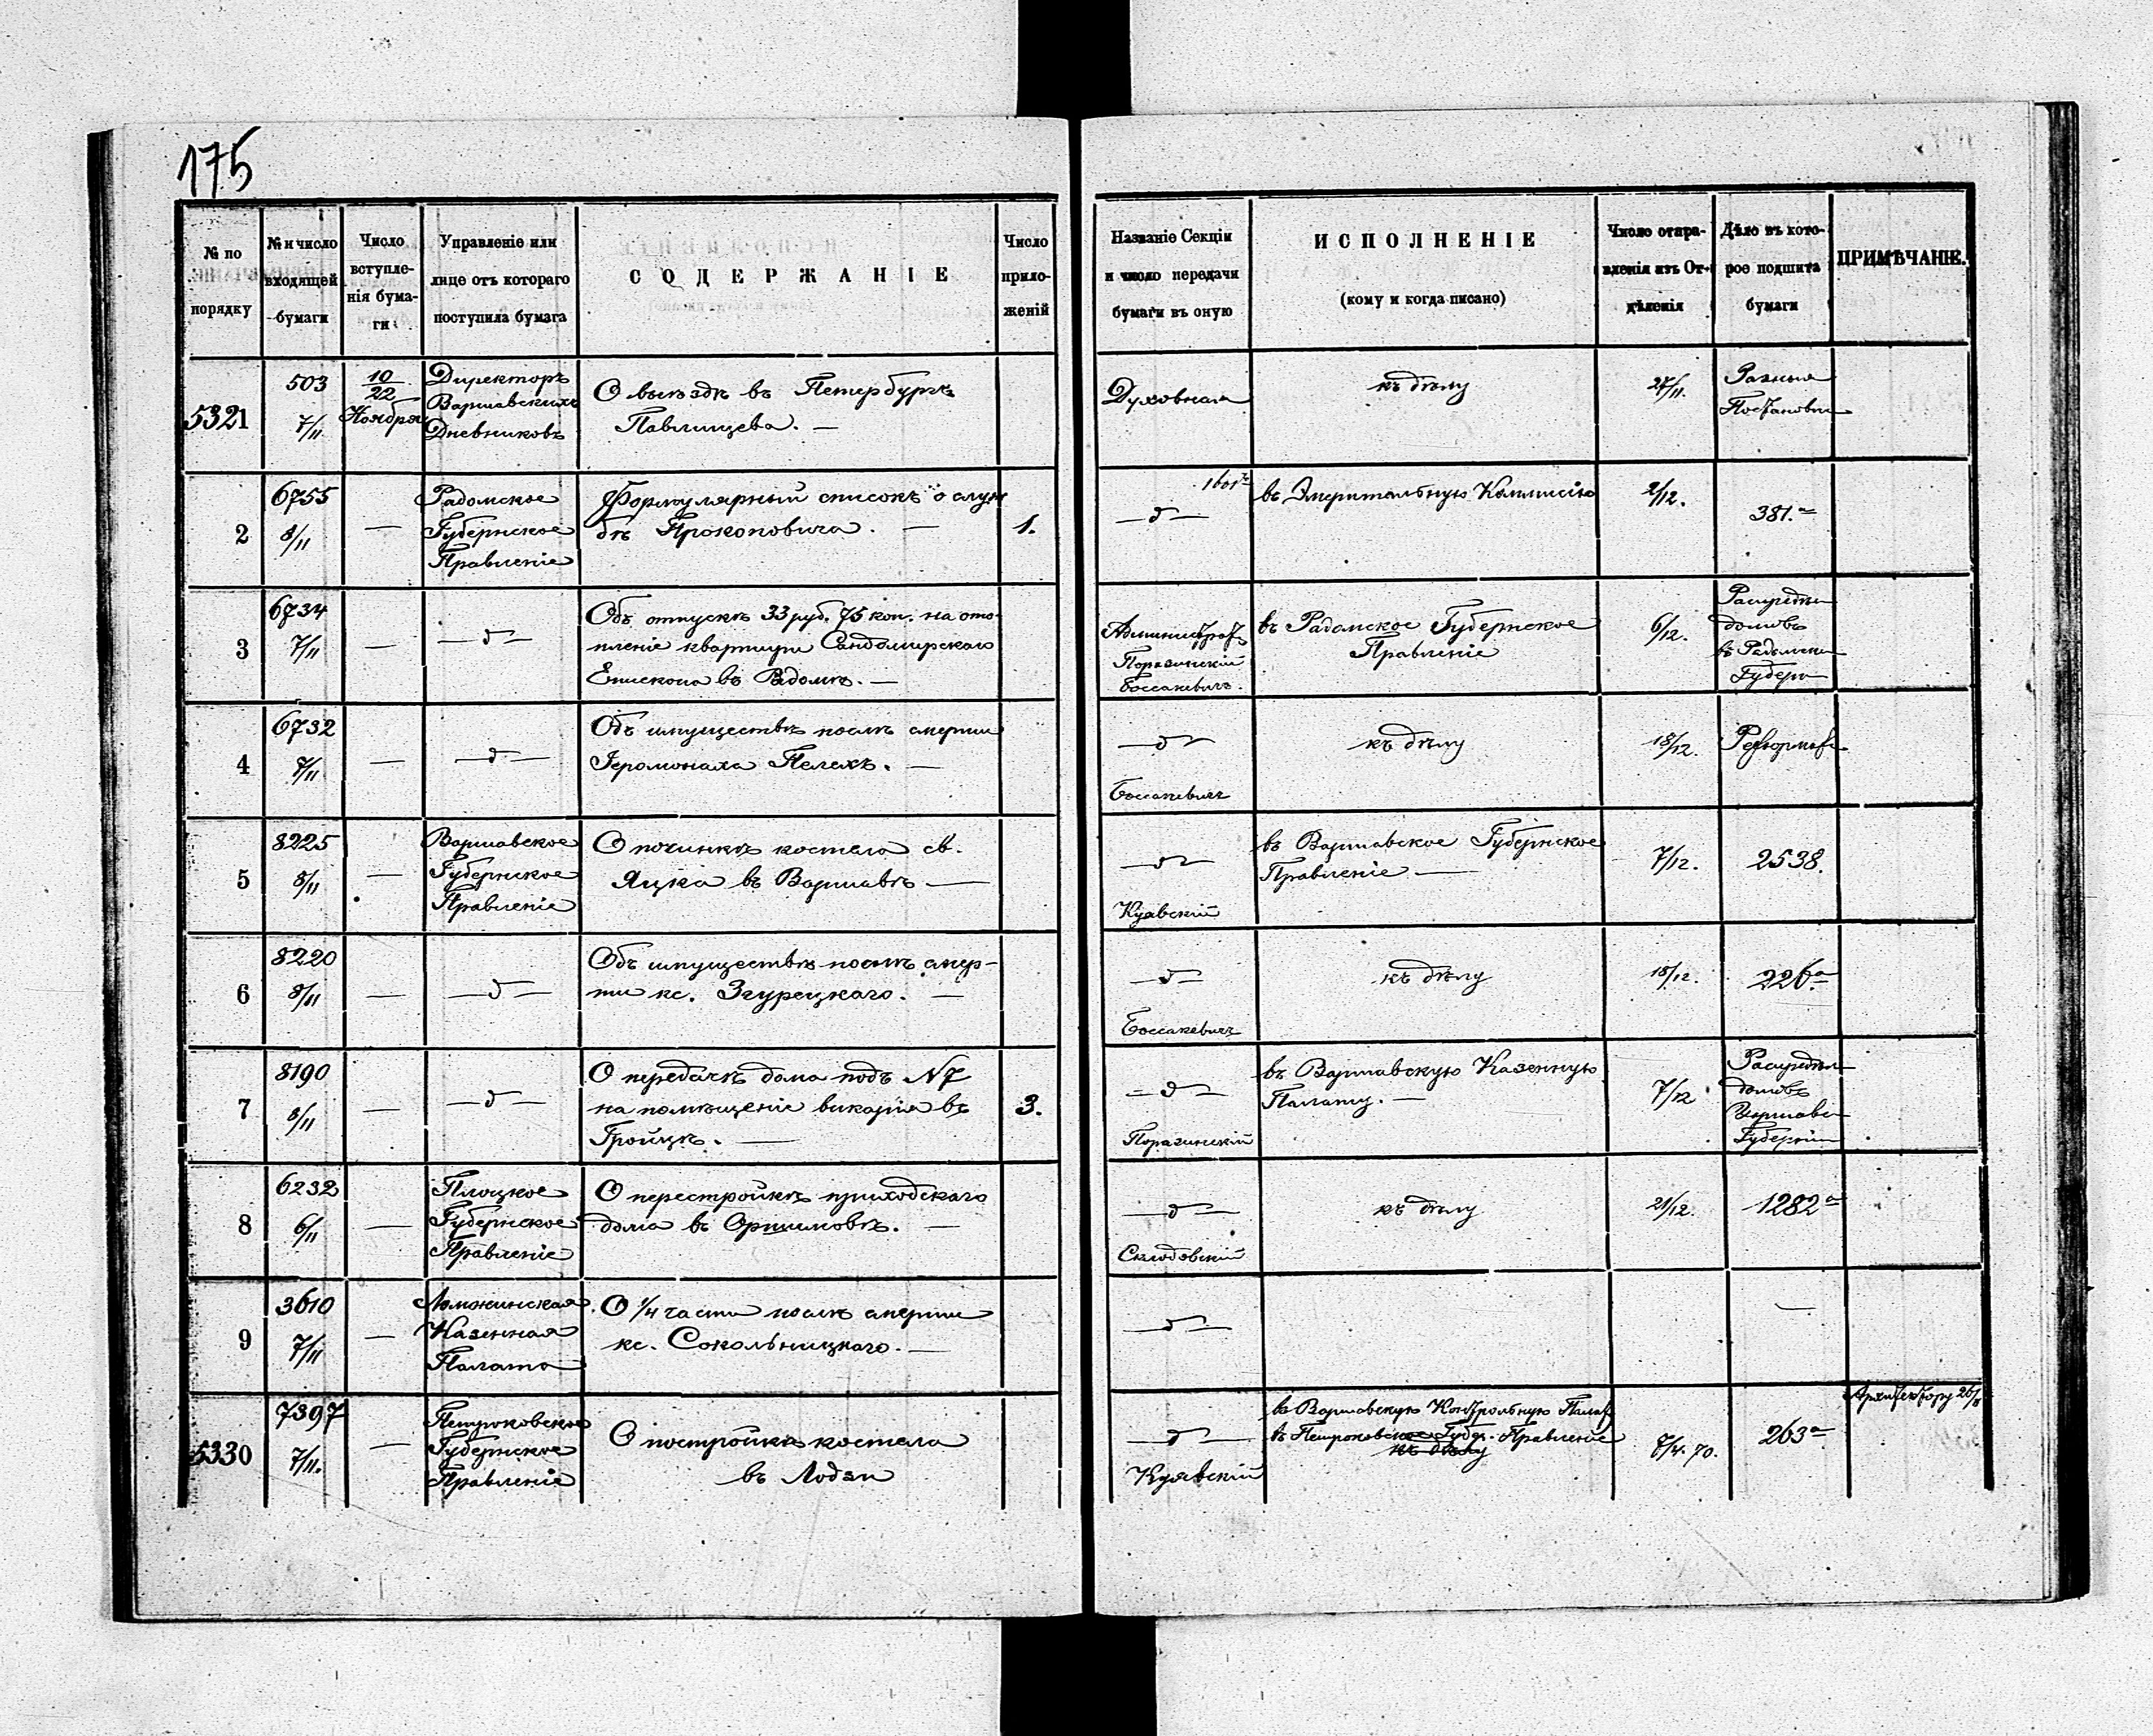 175
№ по порядку
№ и число входящей бумаги
Число вступле-
нія бума-
ги
Управленіе или
лице отъ котораго
поступила бумага
СОДЕРЖАНІЕ
Число
прило-
женій
Названіе Секціи
и число передачи
бумаги въ оную
ИСПОЛНЕНІЕ
(кому и когда писано)
Число отпра-
вленія изъ От-
дѣленія
Дѣло въ кото-
рое подшита
бумаги
ПРИМѢЧАНІЕ.
5321
503
7/11
10/22
Ноября
Директоръ
Варшавскихъ
Дневниковъ
О выѣздѣ въ Петербургъ
Павлищева. —
Духовная
къ дѣлу
27/11.
Разныя
2
6755
8/11
—
Радомское
Губернское
Правленіе
Формулярный списокъ о служ
бѣ Прокоповича. —
1.
— д —
въ Эмеритальную Коммисію
2/12.
381.а
3
6734
7/11
—
— д —
Объ отпускѣ 33 руб. 75 коп. на ото-
пленіе квартиры Сандомирскаго
Епископа въ Радомѣ. —
Поразинскій
Боссакевичъ.
въ Радомское Губернское
Правленіе
6/12.
домовъ
4
6732
7/11
—
— д —
Объ имуществѣ послѣ смерти
Іеромонаха Пелехъ. —
— д —
Боссакевичъ
къ дѣлу
18/12.
5
8225
8/11
—
Варшавское
Губернское
Правленіе
О починкѣ костела св.
Яцка въ Варшавѣ —
— д —
Куявскій
въ Варшавское Губернское
Правленіе —
7/12.
2538.
6
8220
8/11
—
— д —
Объ имуществѣ послѣ смер-
ти кс. Згурецкаго. —
— д —
Боссакевичъ
къ дѣлу
18/12.
226а
7
8190
8/11
—
— д —
О передачѣ дома подъ N7
на помѣщеніе викарія въ
Гройцѣ. —
3.
— д —
Поразинскій
въ Варшавскую Казенную
Палату. —
7/12
домовъ
8
6232
6/11
—
Плоцкое
Губернское
Правленіе
О перестройкѣ приходскаго
дома въ Оршимовѣ. —
— д —
Склодовскій
къ дѣлу
21/12.
1282а
9
3610
7/11
—
Ломжинская
Казенная
Палата
О 1/4 части послѣ смерти
кс. Сокольницкаго. —
— д —
—
5330
7397
7/11.
—
Петроковское
Губернское
Правленіе
О постройкѣ костела
въ Лодзи
— д —
Куявскій
въ Варшавскую Контрольную
въ Петроковское Губер. Правленіе
къ дѣлу
7/4. 70.
263а
Архитектору